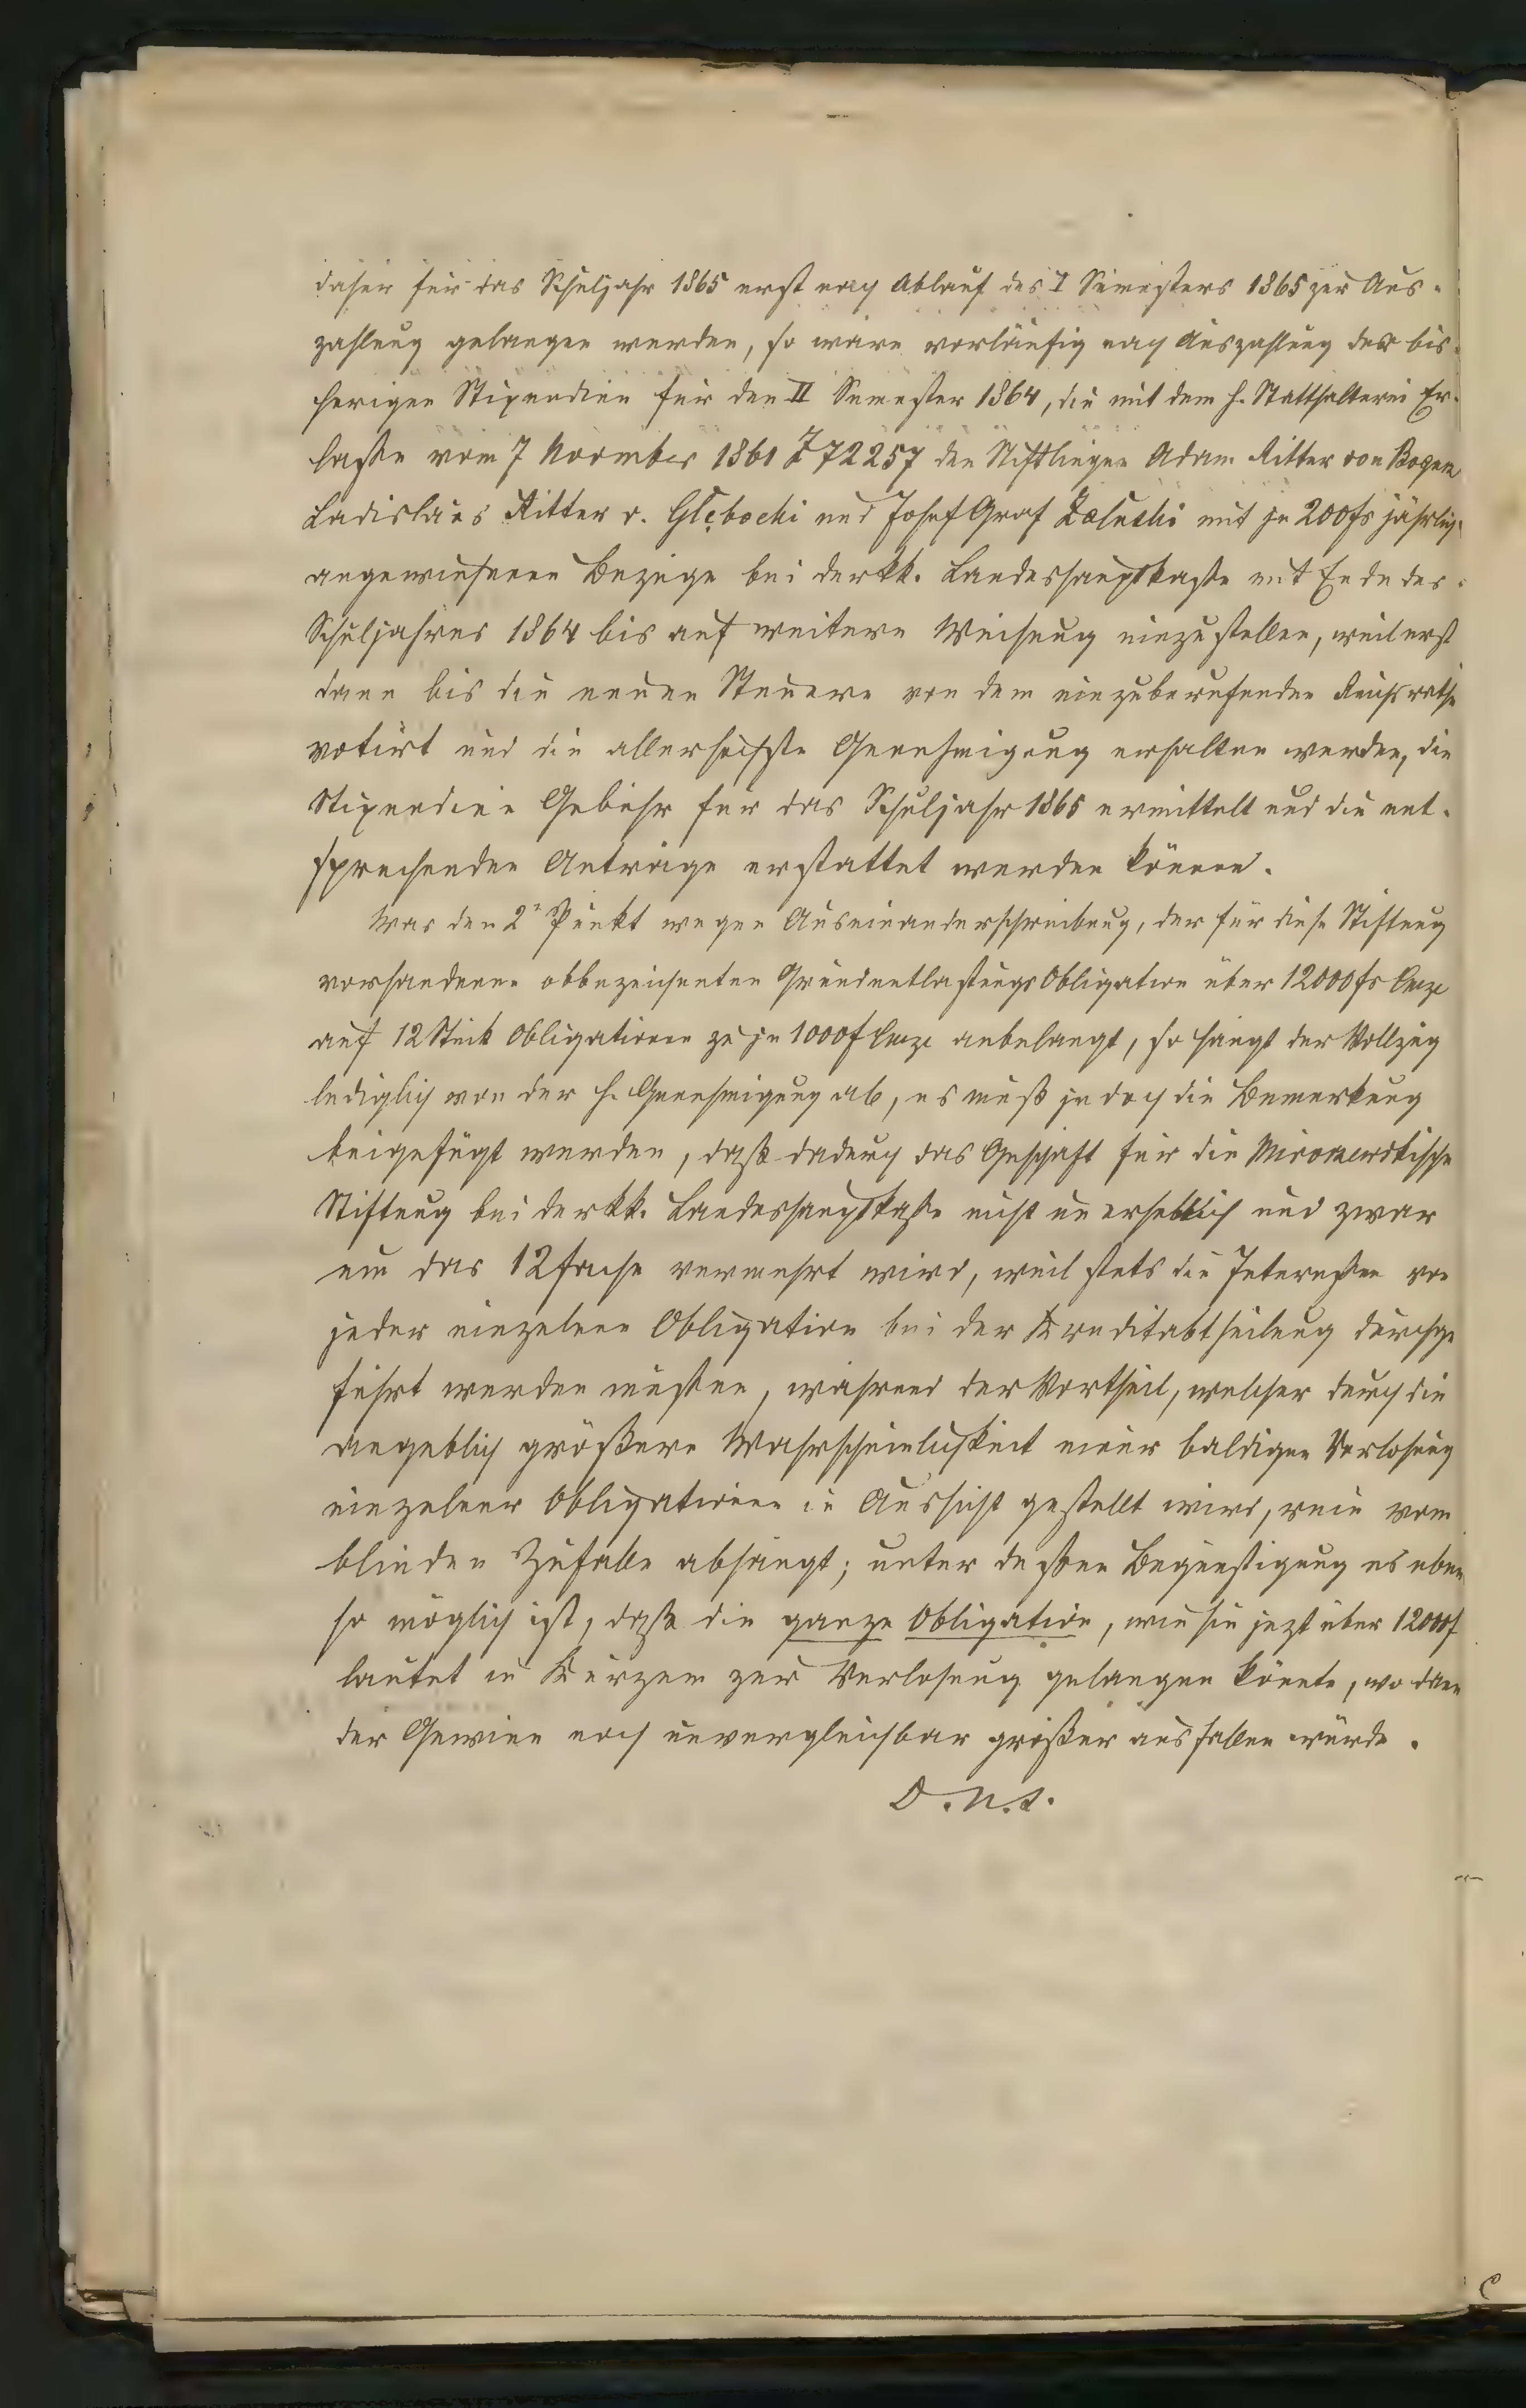 daher für das Schuljahr 1865 erst nach Ablauf des I Semesters 1865 zur Aus-
zahlung gelangen werden, so wäre vorläufig nach Auszahlung der bis-
herigen Stipendien für den II Semester 1864, die mit dem h. Statthalterei Er-
laße vom 7 November 1861 Z 72257 den Stiftlingen Adam Ritter von
Ladislaus Ritter v. Głębocki und Josef Graf Załuski mit je 200 fs jährlich
angewiesenen Bezüge bei der kk. Landeshauptkasse mit Ende des
Schuljahres 1864 bis auf weitere Weisung einzustellen, weil erst
dann bis die neuen Steuern von dem einzuberufenden Reichsrathe
votirt und die allerhöchste Genehmigung erhalten werden, die
Stipendien Gebühr für das Schuljahr 1865 ermittelt und die ent-
sprechenden Anträge erstattet werden können.
Was den 2n Punkt wegen Auseinanderschreibung, der für diese Stiftung
vorhandenen obbezeichneten Grundentlastungs Obligation über 12000 fs
auf 12 Stück Obligationen zu je 1000 f anbelangt, so hängt der Vollzug
lediglich von der h. Genehmigung ab, es muß jedoch die Bemerkung
beigefügt werden, daß dadurch das Geschäft für die
Stiftung bei der kk. Landeshauptkasse nicht unerheblich und zwar
um das 12fache vermehrt wird, weil stets die Interessen von
jeder einzelnen Obligation bei der Kreditabtheilung durchge
führt werden müßten, während der Vortheil, welcher durch die
angeblich größere Wahrscheinlichkeit einer baldigen Verlosung
einzelner Obligationen in Aussicht gestellt wird, rein vom
blinden Zufalle abhängt; unter deßen Begünstigung es eben
so möglich ist, daß die ganze Obligation, wie sie jezt über 12000 f
lautet in Kürzem zur Verlosung gelangen könnte, wo dann
der Gewinn noch unvergleichbar größer ausfallen würde.